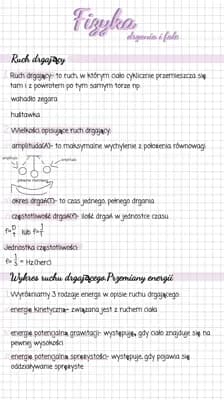 Fizyka
drgania i fale
Ruch drgający
Ruch drgający- to ruch, w którym ciało cyklicznie przemieszcza się
tam i z powrotem po tym samym torze np.
wahadło zegara
huśtawka
Wielkości opisujące ruch drgający:
amplituda(A)- to maksymalne wychylenie z położenia równowagi
amplituda
amplituda
położenie równowagi
okres drgań(T)- to czas jednego, pełnego drgania
częstotliwość drgań(f)- ilość drgań w jednostce czasu
lub
Jednostka częstotliwości
= Hz(herc)
Wykres ruchu drgającego.Przemiany energii
Wyróżniamy 3 rodzaje energii w opisie ruchu drgającego:
energie kinetyczną- związana jest z ruchem ciała
energie potencjalną grawitacji- występuje, gdy ciało znajduje się na
pewnej wysokości
energie potencjalną sprężystości- występuje, gdy pojawia się
oddziaływanie sprężyste